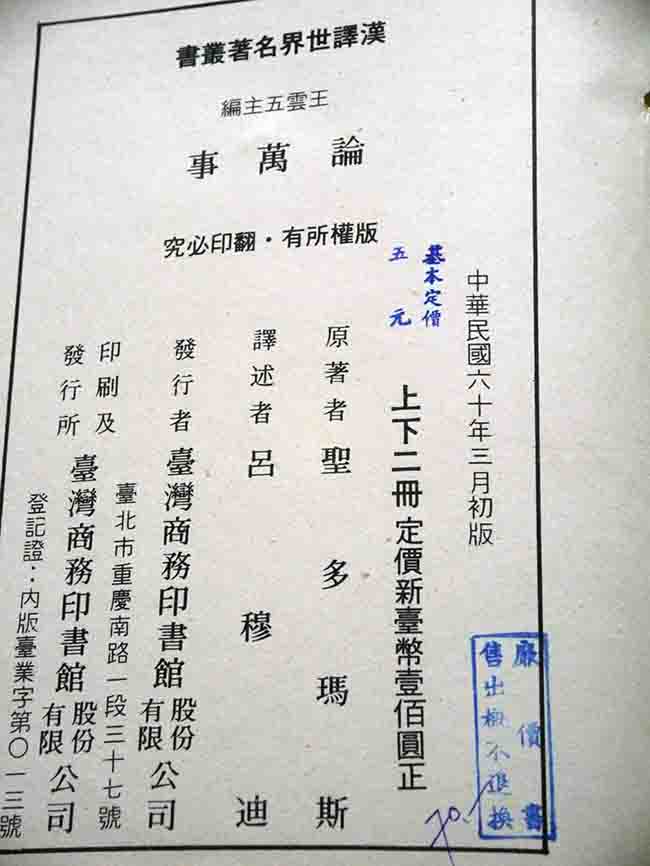 漢譯世界名著叢書
王雲五主編
論萬事
版權所有・翻印必究
中華民國六十年三月初版
基本定價
五元
上下二冊定價新臺幣壹佰圓正
原著者 聖多瑪斯
譯述者 呂穆迪
發行者 臺灣商務印書館股份有限公司
臺北市重慶南路一段三十七號
印刷及發行所 臺灣商務印書館股份有限公司
登記證：內版臺業字第〇一三號
廉價書
售出概不退換